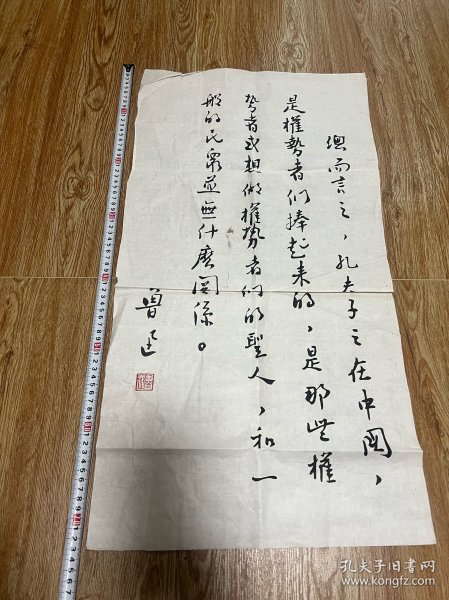 總而言之，孔夫子之在中國，
是權勢者們捧起來的，是那些權
势者或想做權势者們的聖人，和一
般的民衆並無什麽関係。
魯迅
孔夫子旧书网
www.kongfz.com